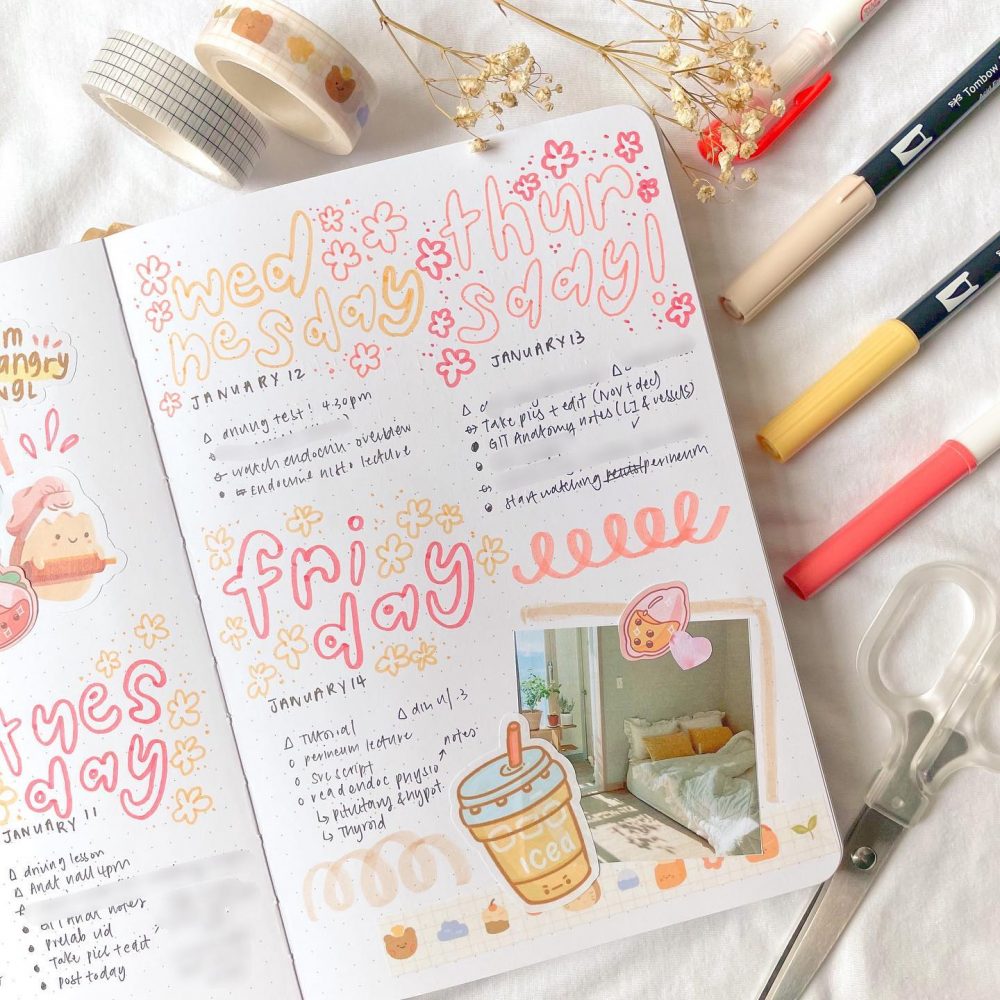 m
angry
ngl
tues
day
JANUARY 11
Δ driving lesson
Δ Anat hall 4pm
notes
• Prelab vid
• Take pics + edit
• post today
wed
nesday
JANUARY 12
Δ driving test! 4:30pm
watch endocrin. overview
• Endocrine histo lecture
thur
sday!
JANUARY 13
Take pics + edit (Nov + dec)
• GIT Anatomy notes (LI & vessels)
• start watching /perineum
fri
day
JANUARY 14
Δ Tutorial
Δ din w/ :3
o perineum lecture
o SRC script
o read endoc physio → notes:
↳ pituitary & hypot.
↳ Thyroid
iced
Tombow